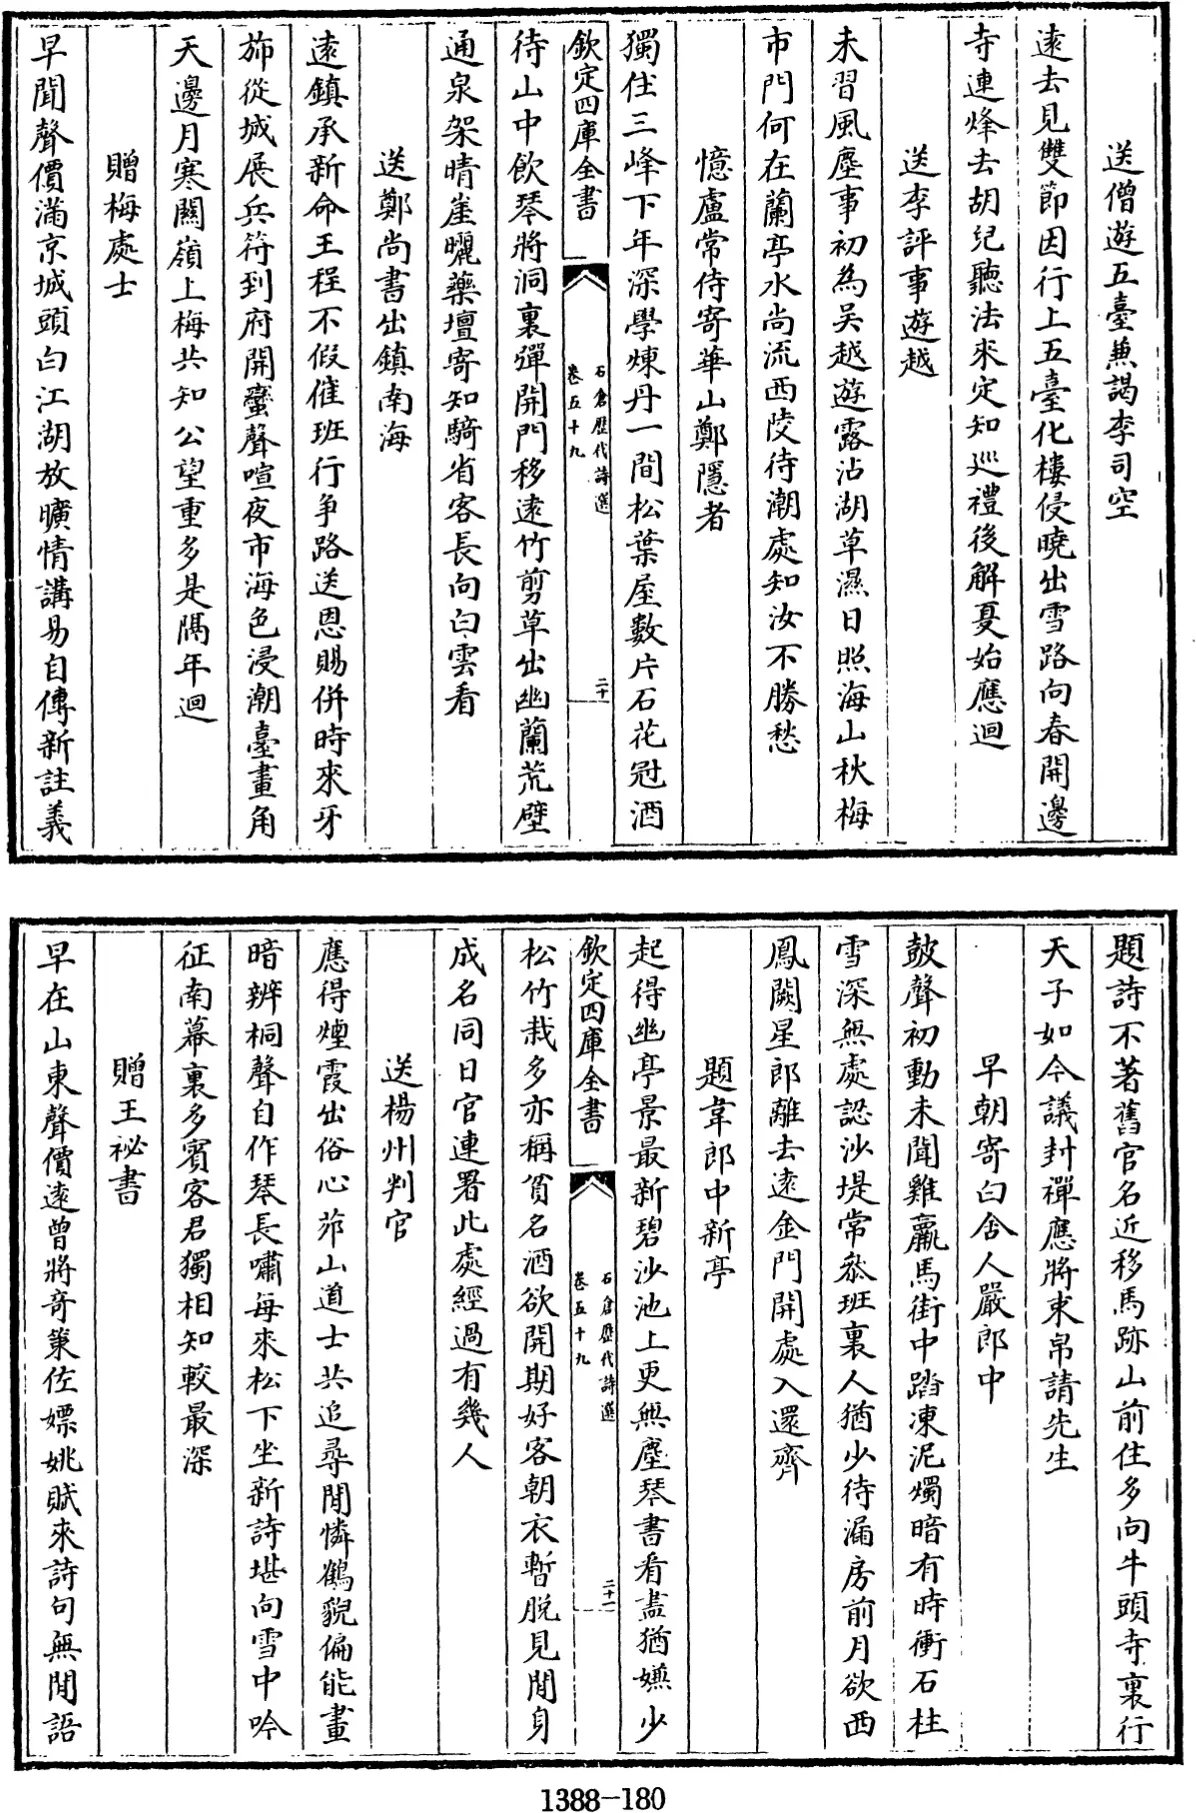 送僧遊五臺兼謁李司空
遠去見雙節因行上五臺化樓侵曉出雪路向春開邊
寺連烽去胡兒聽法來定知巡禮後解夏始應迴
送李評事遊越
未習風塵事初為吳越遊露沾湖草濕日照海山秋梅
市門何在蘭亭水尚流西陵待潮處知汝不勝愁
憶盧常侍寄華山鄭隱者
獨住三峰下年深學煉丹一間松葉屋數片石花冠酒
欽定四庫全書
石倉歷代詩選
卷五十九
二十
待山中飲琴將洞裏彈開門移遠竹剪草出幽蘭荒壁
通泉架晴崖曬藥壇寄知騎省客長向白雲看
送鄭尚書出鎮南海
遠鎮承新命王程不假催班行爭路送恩賜併時來牙
旆從城展兵符到府開蠻聲喧夜市海色浸潮臺畫角
天邊月寒關嶺上梅共知公望重多是隅年迴
贈梅處士
早聞聲價滿京城頭白江湖放曠情講易自傳新註義
題詩不著舊官名近移馬跡山前住多向牛頭寺裏行
天子如今議封禪應將束帛請先生
早朝寄白舍人嚴郎中
鼓聲初動未聞雞羸馬街中踏凍泥燭暗有時衝石柱
雪深無處認沙堤常叅班裏人猶少待漏房前月欲西
鳳闕星郎離去遠金門開處入還齊
題韋郎中新亭
起得幽亭景最新碧沙池上更無塵琴書看盡猶嫌少
欽定四庫全書
石倉歷代詩選
卷五十九
二十一
松竹栽多亦稱貧名酒欲開期好客朝衣暫脱見閒身
成名同日官連署此處經過有幾人
送楊州判官
應得煙霞出俗心茆山道士共追尋閒憐鶴貌偏能畫
暗辨桐聲自作琴長嘯每來松下坐新詩堪向雪中吟
征南幕裏多賓客君獨相知較最深
贈王祕書
早在山東聲價遠曾將奇䇿佐嫖姚賦來詩句無閒語
1388-180